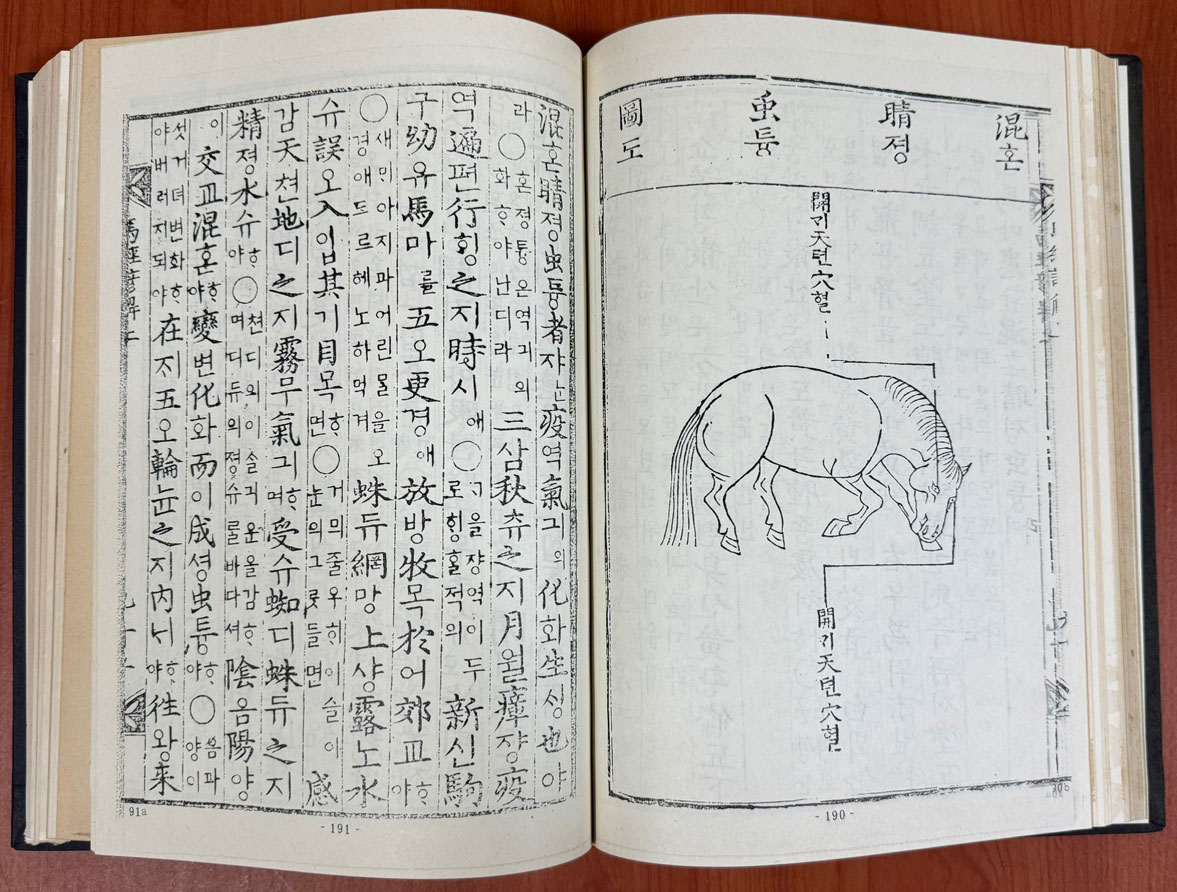 混혼 睛졍 虫튱 圖도
開ᄀᆡ天텬穴혈
開ᄀᆡ天텬穴혈
90b
- 190 -
混혼睛졍虫튱者쟈ᄂᆞᆫ疫역氣긔의化화生ᄉᆡᆼ也야
라○혼졍튱은역긔의화ᄒᆞ야난디라三삼秋츄之지月월瘴쟝疫
역遍편行ᄒᆡᆼ之지時시애○ᄀᆞ을쟝역이두로ᄒᆡᆼᄒᆞᆯ적의新신駒
구幼유馬마를五오更경애放방牧목於어郊교ᄒᆞ야
○새ᄆᆡ아지과어린ᄆᆞᆯ을오경애드르헤노하먹겨蛛듀網망上샹露노水
슈誤오入입其기目목ᄒᆞ면○거믜줄우희이슬이눈의그릇들면感
감天텬地디之지霧무氣긔ᄒᆞ며受슈蜘디蛛듀之지
精졍水슈ᄒᆞ야○텬디의이슬긔운을감ᄒᆞ며디듀의졍슈를바다셔陰음陽양
이交교混혼ᄒᆞ야變변化화而이成셩虫튱ᄒᆞ야○음과양이
섯거뎌변화ᄒᆞ야버러지되야在ᄌᆡ五오輪뉸之지內ᄂᆡᄒᆞ야往왕来
馬經諺解 二
91a
- 191 -